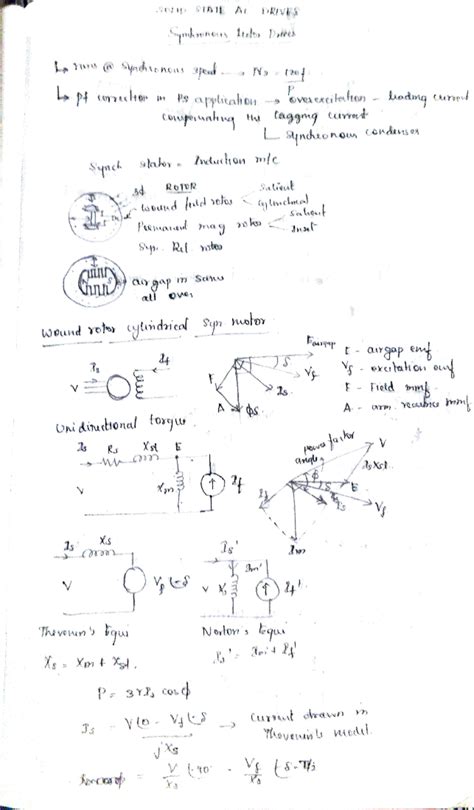 SOLID STATE AC DRIVES
Synchronous Motor Drives
↳ runs @ synchronous speed → Ns = 120f/P
↳ pf correction in Ps application → overexcitation - leading current
compensating the lagging current
↳ synchronous condenser
Synch stator = Induction m/c
ROTOR
Wound field rotor < Salient
Cylindrical
Permanent mag rotor < Salient
Inset
Syn. Rel. rotor
air gap is same
all over
Wound rotor cylindrical Syn motor
Is
If
V
E airgap
δ
Vf
Is
F
A
ϕs
E - airgap emf
Vf - excitation emf
F - Field mmf
A - arm. mmf
Unidirectional torque
Is Rs Xsl E
V
Xm
If
power factor
angle
V
ϕ
δ
E
Is Xsl
Vf
Is
If
Im
Is Xs
V
Vf ∠-δ
Is'
Im'
V
Xs
If'
Thevenin's Equi
Norton's Equi
Xs = Xm + Xsl.
Is' = Im' + If'
P = 3V Is cosϕ
Is = (V∠0 - Vf∠-δ) / jXs → Current drawn in
Thevenin's model.
V/Xs ∠-90° - Vf/Xs ∠-δ-π/2